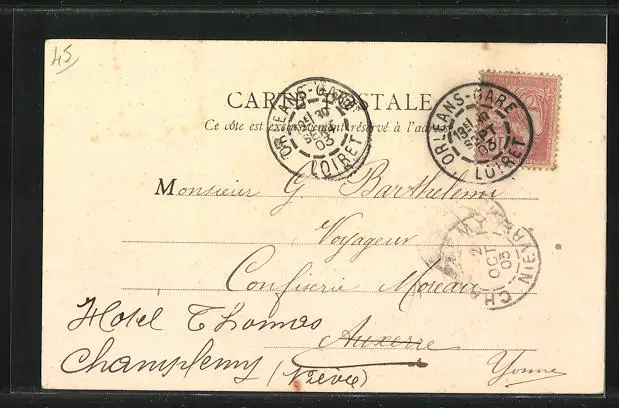 45
CARTE POSTALE
Ce côté est exclusivement réservé à l'adresse
ORLEANS-GARE
LOIRET
SEPT
03
ORLEANS-GARE
LOIRET
SEPT
03
Monsieur G. Barthelemi
Voyageur
Confiserie Moreau
Auxerre
Yonne
Hotel Thomas
Champlemy (Nièvre)
2
OCT
03
NIEVRE